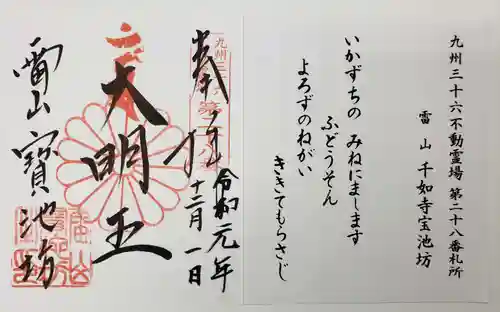 九州三十六不動霊場 第二十八番札所
雷山 千如寺宝池坊
いかずちの みねにまします
ふどうそん
よろずのねがい
ききてもらさじ
奉
令和元年
十二月一日
大明王
雷山 寳池坊